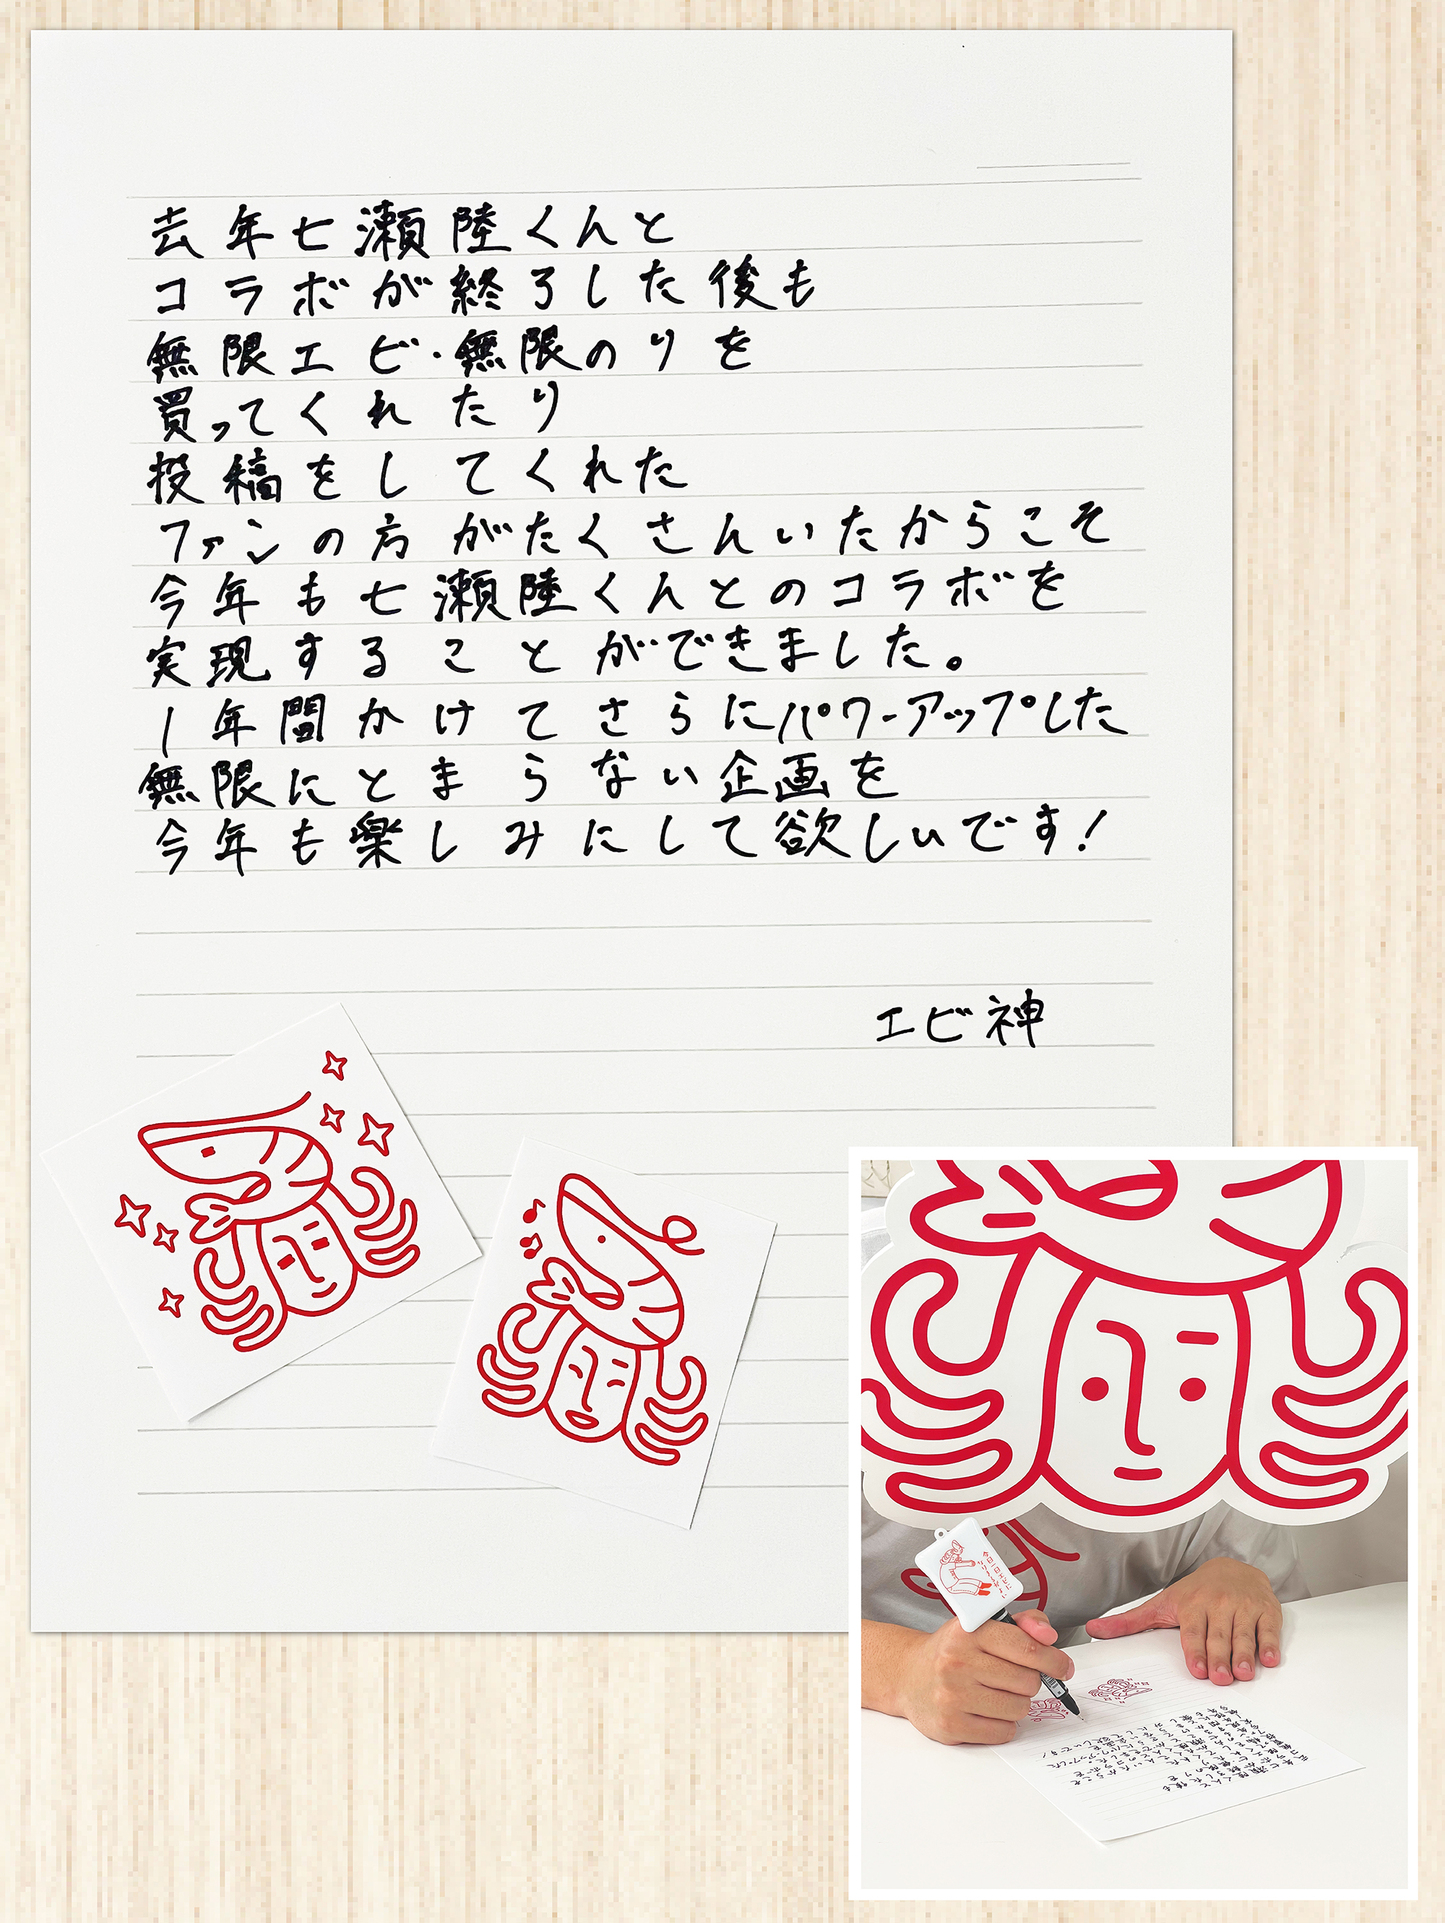 去年七瀬陸くんと
コラボが終了した後も
無限エビ・無限のりを
買ってくれたり
投稿をしてくれた
ファンの方がたくさんいたからこそ
今年も七瀬陸くんとのコラボを
実現することができました。
1年間かけてさらにパワーアップした
無限にとまらない企画を
今年も楽しみにして欲しいです!
エビ神